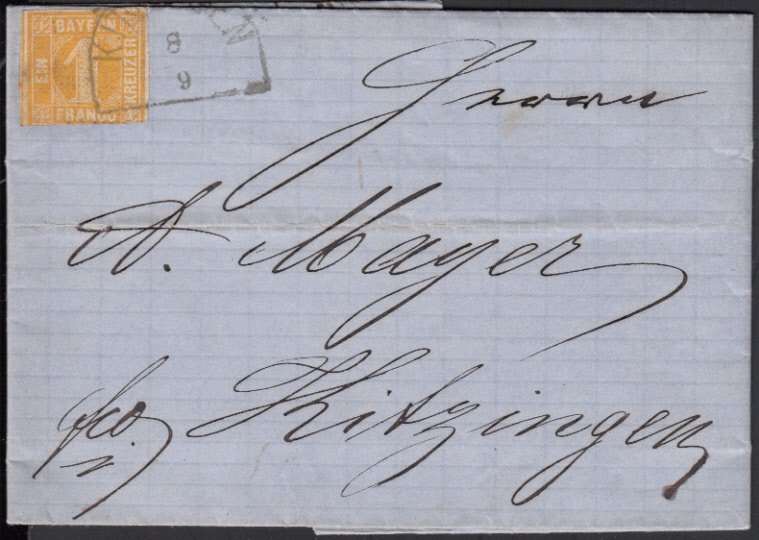 BAYERN
EIN
1
KREUZER
FRANCO
8
9
Herrn
A. Mayer
fco. Kitzingen